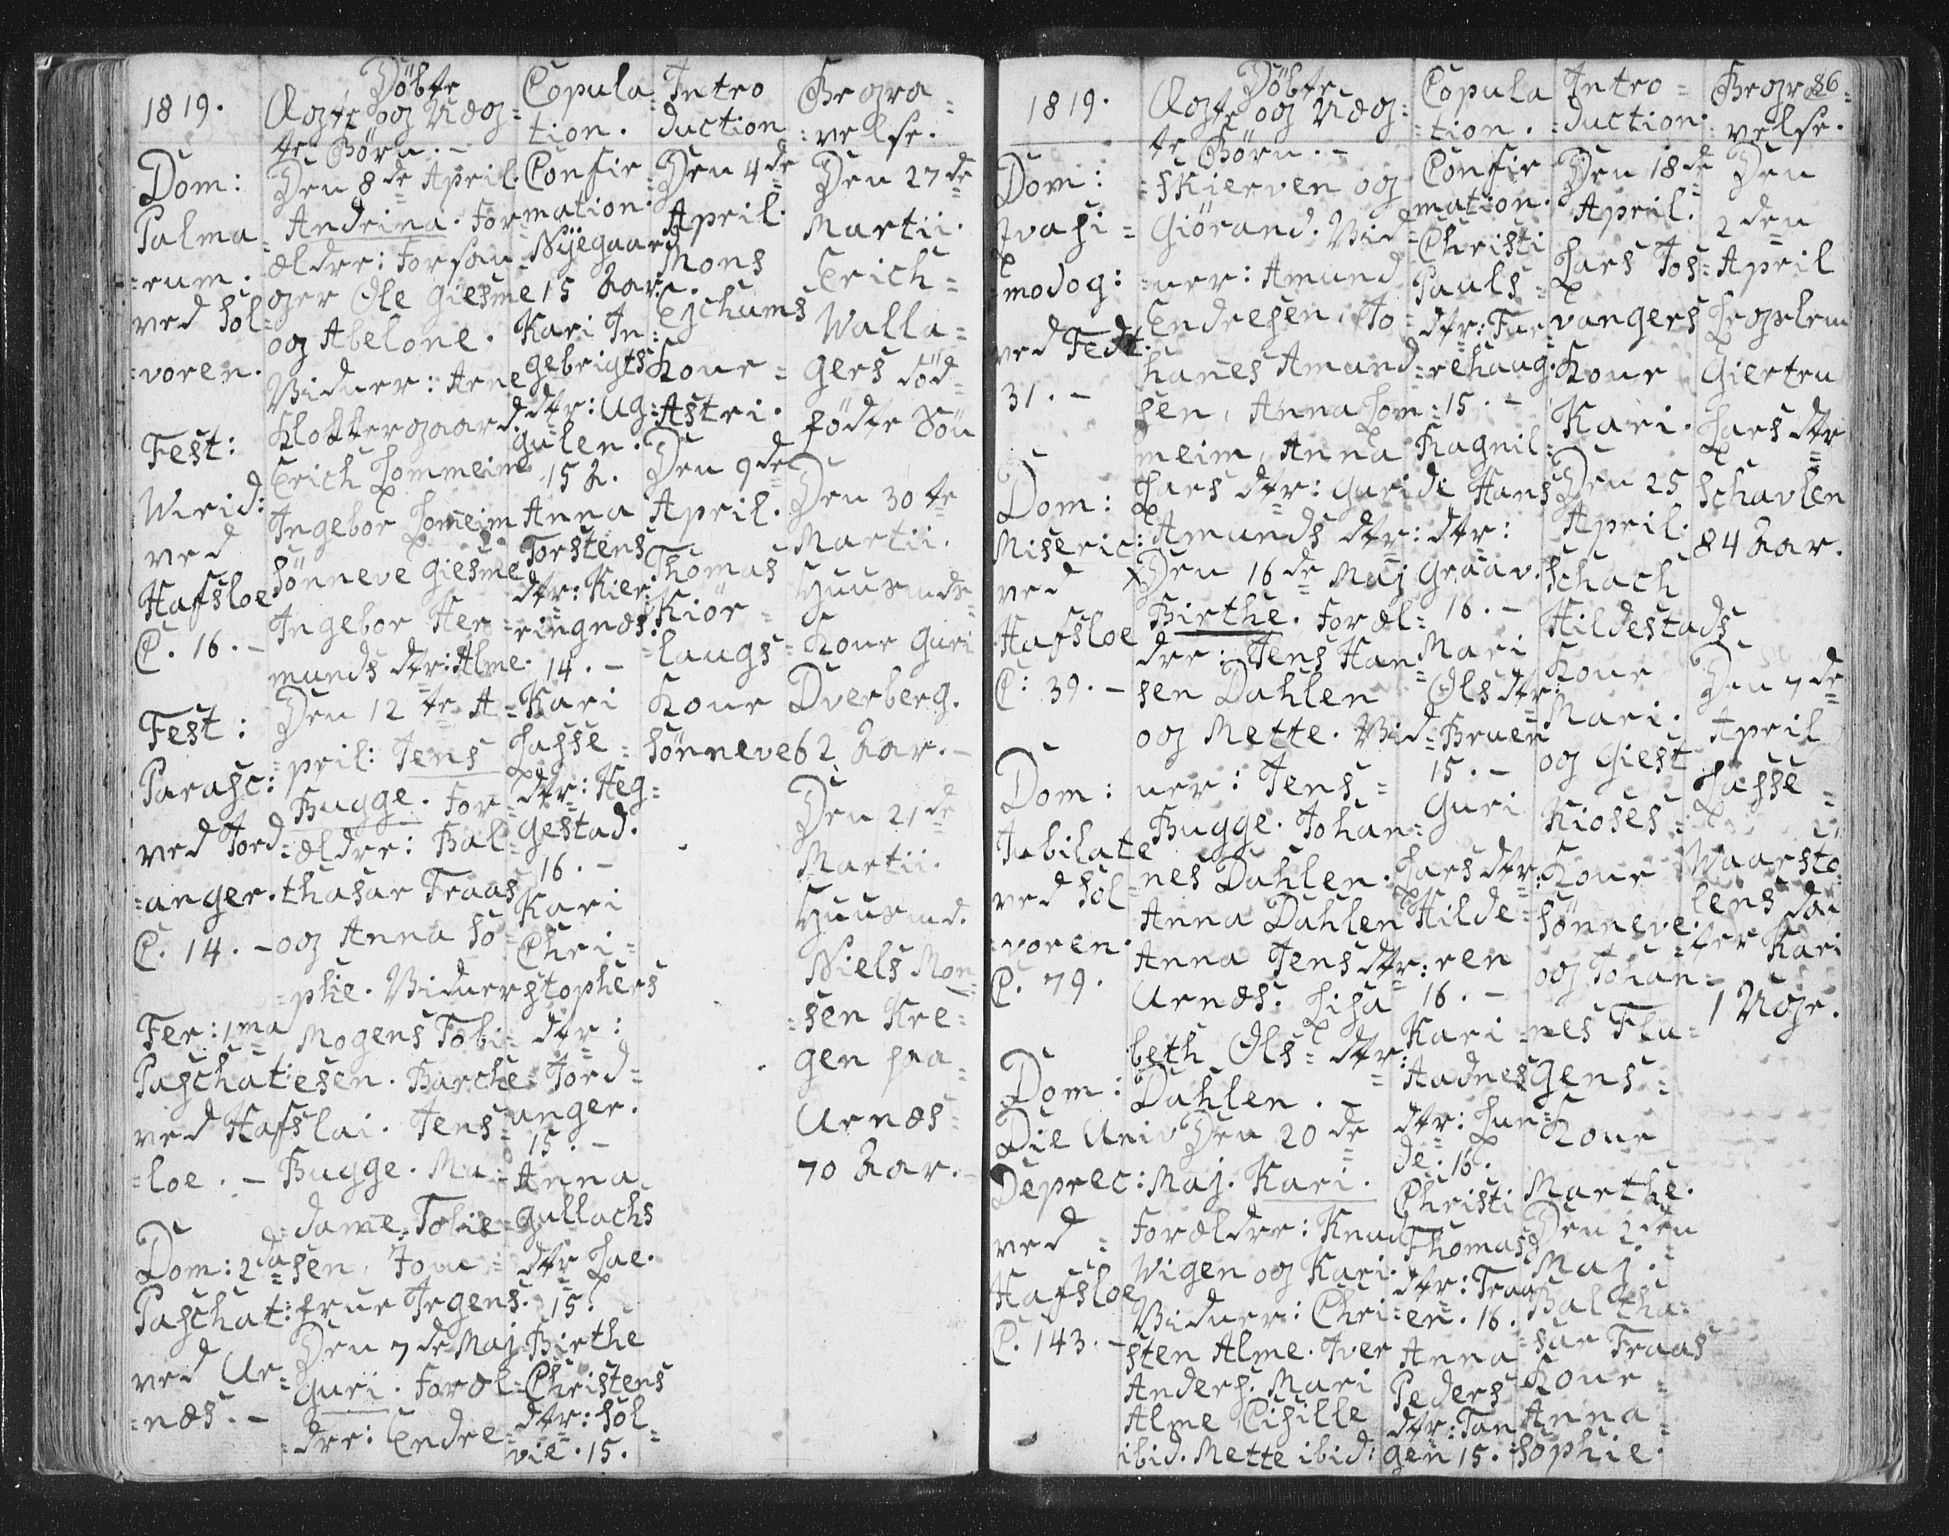 1819.
Döbte
Ægte og Uæg-
te Börn. -
Copula-
tion.
Intro
duction
Begra-
velse.
Dom:
Palma-
rum.
ved Sol-
voren.
Fest:
Virid:
ved
Hafsloe
C. 16. -
Fest:
Parasc:
ved Jord-
anger.
C. 14. -
Fer: 1ma
Paschat:
ved Hafs-
loe. -
Dom: 2da
Paschat:
ved Ur-
næs. -
Den 8de April.
Andrina. For-
ældre: Forsan-
ger Ole Giesme
og Abelone.
Vidner: Arne
Klokkergaard.
Erich Lommeim
Ingebor Lomeim
Sönneve Giesme
Ingebor Her-
munds dtr: Alme.
Den 12te A-
pril: Jens
Bugge. For-
ældre: Bal-
thasar Fraas
og Anna So-
phie. Vidner
Mogens Tobi-
esen. Barche
lai. Jens
Bugge. Ma-
dame Tobie-
sen, Jom-
frue Irgens.
Den 7de Maj
Guri. Foræl-
dre: Endre
Confir-
mation.
Nÿegaard
15 Aar.
Kari In-
gebrigts
dtr: Ug-
gulen.
15 A.
Anna
Torstens
dtr: Kier-
ringnæs.
14. -
Kari
Lasse-
dtr: Heg-
gestad.
16. -
Kari
Chri-
stophers
dtr:
Jord-
anger.
15. -
Anna
Gullachs
dtr Lae.
15.
Birthe
Christens
dtr: Sol-
vie. 15.
Den 4de
April.
Mons
Ejchums
Kone
Astri.
Den 9de
April.
Thomas
Kiör-
laugs
Kone
Sönneve
Den 27de
Martii.
Erich
Walla-
gers död-
födte Sön
Den 30te
Martii.
Huusmds
Kone Guri
Dverberg.
62 Aar. -
Den 21de
Martii.
Huusmd.
Niels Mon-
sen Kre-
gen paa
Urnæs
70 Aar. -
86
1819.
Döbte
Ægte og Uæg-
te Börn. -
Copula
-tion.
Intro-
duction.
Begra-
velse.
Dom:
Qvasi-
modog:
ved Fedt.
31. -
Dom:
Miseric:
ved
Hafsloe
C: 39. -
Dom:
Jubilate
ved Sol-
voren.
C. 79.
Dom:
Die Univ
Deprec:
ved
Hafsloe
C. 143. -
skierven og
Giörand. Vid-
ner: Amund
Endresen, Jo-
hanes Amund-
sen, Anna Lom-
meim, Anna
Lars dtr: Guri
Amunds dtr:
Den 16de Maj
Birthe. Foræl-
dre: Jens Han-
sen Dahlen
og Mette. Vid-
ner: Jens
Bugge. Johan-
nes Dahlen.
Anna Dahlen
Anna Jens dtr:
Urnæs. Lisa
beth Ols- dtr:
Dahlen. -
Den 20de
Maj. Kari.
Forældre: Knud
Wigen og Kari.
Vidner: Chri-
sten Alme. Iver
Anders. Mari
Alme Cisille
ibid. Mette ibid:
Confir
mation.
Christi
Pauls-
dtr: Fur-
rehaug.
15. -
Ragnil-
de Hans
dtr:
Graav.
16. -
Mari
Ols dtr:
Bruen
15. -
Guri
Lars dtr:
Hilde-
ren
16. -
Kari
Aadnes
dtr: Lun-
de. 16.
Christi
Thomas
dtr: Fraa-
en. 16.
Anna
Peders
dtr: Tan-
gen 15.
Den 18de
April.
Lars Jos-
vangers
Kone
Kari.
Den 25
April.
Schach
Hildestads
Kone
Mari.
og Giest
Kioses
Kone
Sönneve.
og Johan-
nes Flu-
gens
Kone
Marthe.
Den 2den
Maj.
Baltha-
sar Fraas
Kone
Anna
Sophie.
Den
2den
April
Giertru
Lars dtr
Schavlen
84 Aar.
Den 7de
April
Lasse
Waarstö-
lens dat-
ter Kari
1 Uge.